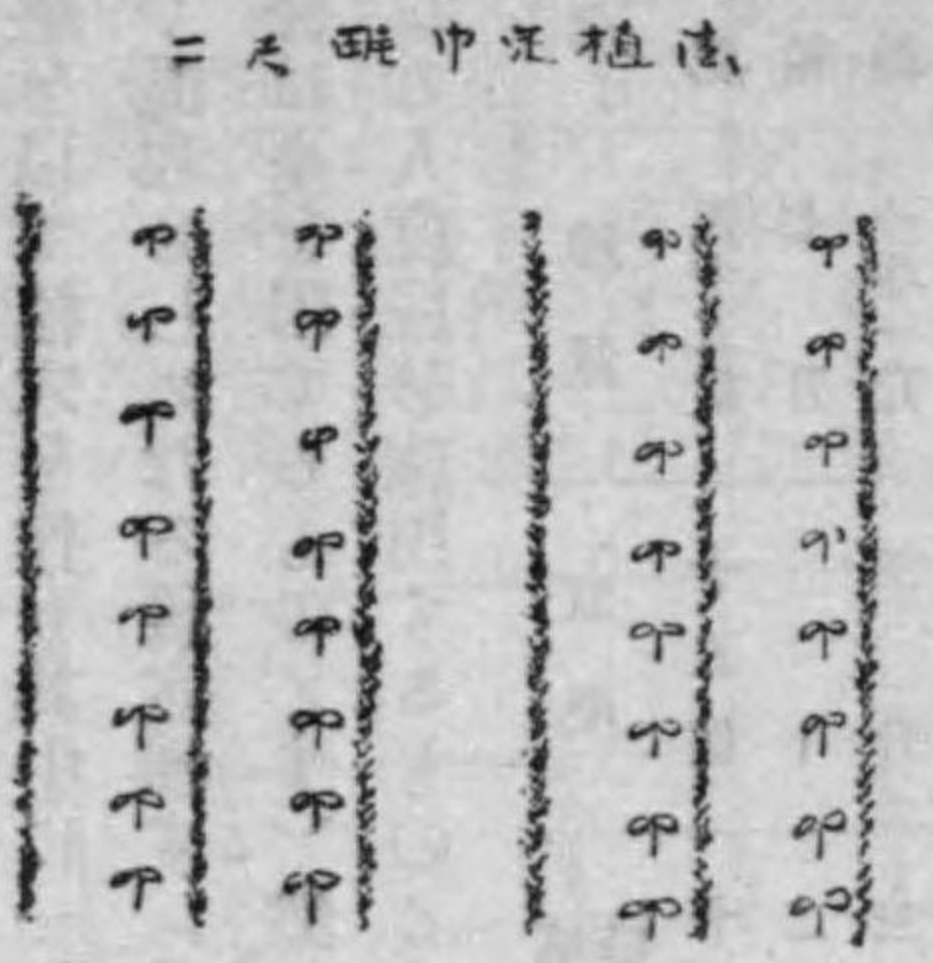 二尺畦巾混植法